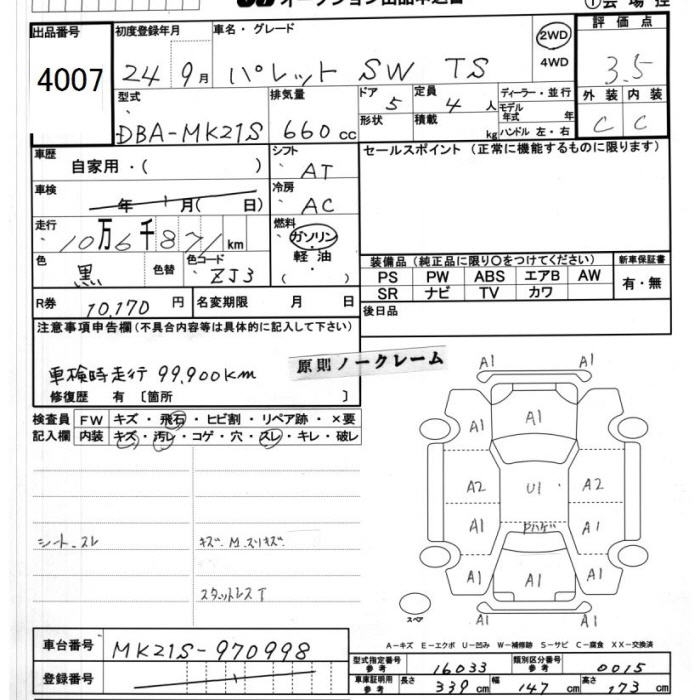 オークション出品申込書
①会場控
出品番号 4007
初度登録年月 24 9月
車名・グレード パレット SW TS
2WD
4WD
評価点 3.5
外装 内装
C C
型式 DBA-MK21S
排気量 660cc
ドア 5
形状
定員 4人
積載 kg
ディーラー・並行
モデル年式 年
ハンドル 左・右
車歴 自家用・( )
シフト AT
セールスポイント (正常に機能するものに限ります)
車検 年 月( 日)
冷房 AC
走行 10万6千871km
燃料 ガソリン
軽油
( )
色 黒 色替
色コード ZJ3
装備品(純正品に限り○をつけてください) 新車保証書
PS PW ABS エアB AW
SR ナビ TV カワ
有・無
R券 10,170円
名変期限 月 日
後日品
注意事項申告欄(不具合内容等は具体的に記入して下さい)
車検時走行 99,900km
原則ノークレーム
修復歴 有〔箇所 〕
検査員記入欄
FW キズ・飛石・ヒビ割・リペア跡・×要
内装 キズ・汚レ・コゲ・穴・スレ・キレ・破レ
シート スレ
キズ M スリキズ
スタットレス T
A1 A1
A1 A1 A1
A2 U1 A2
A1 A1
A1 A1 A1
A1 A1
スペア
A-キズ E-エクボ U-凹み W-補修跡 S-サビ C-腐食 XX-交換済
車台番号 MK21S-970998
登録番号
型式指定番号参考 16033
類別区分番号参考 0015
車庫証明用参考 長さ 339cm 幅 147cm 高さ 173cm